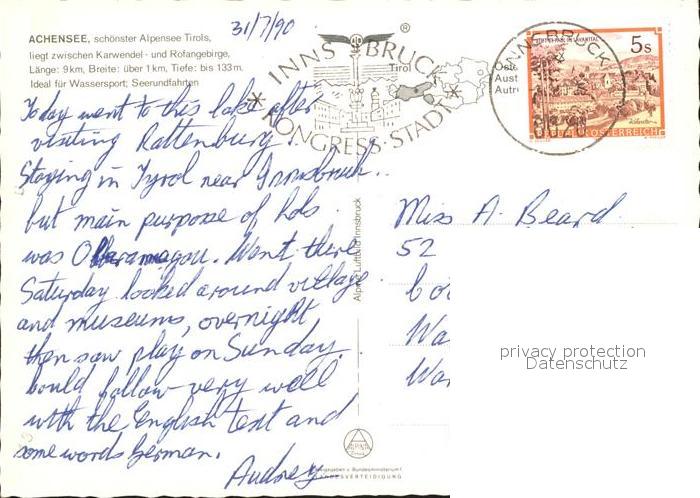 31/7/90
ACHENSEE, schönster Alpensee Tirols,
liegt zwischen Karwendel- und Rofangebirge,
Länge: 9 km, Breite: über 1 km, Tiefe: bis 133 m.
Ideal für Wassersport; Seerundfahrten
Today went to this lake after
visiting Rattenburg.
Staying in Tyrol near Innsbruck.
but main purpose of hols
was
Went there
Saturday looked around village
and museums, overnight
then saw play on Sunday.
Could follow very well
with the English text and
some words German.
Audrey
INNSBRUCK
KONGRESS-STADT
®
Tirol
Öste
Aust
Autr
INNSBRUCK
5s
Alpine Luftbild Innsbruck
ALPINE
Miss A. Beard
52
Co
Wa
Wa
privacy protection
Datenschutz